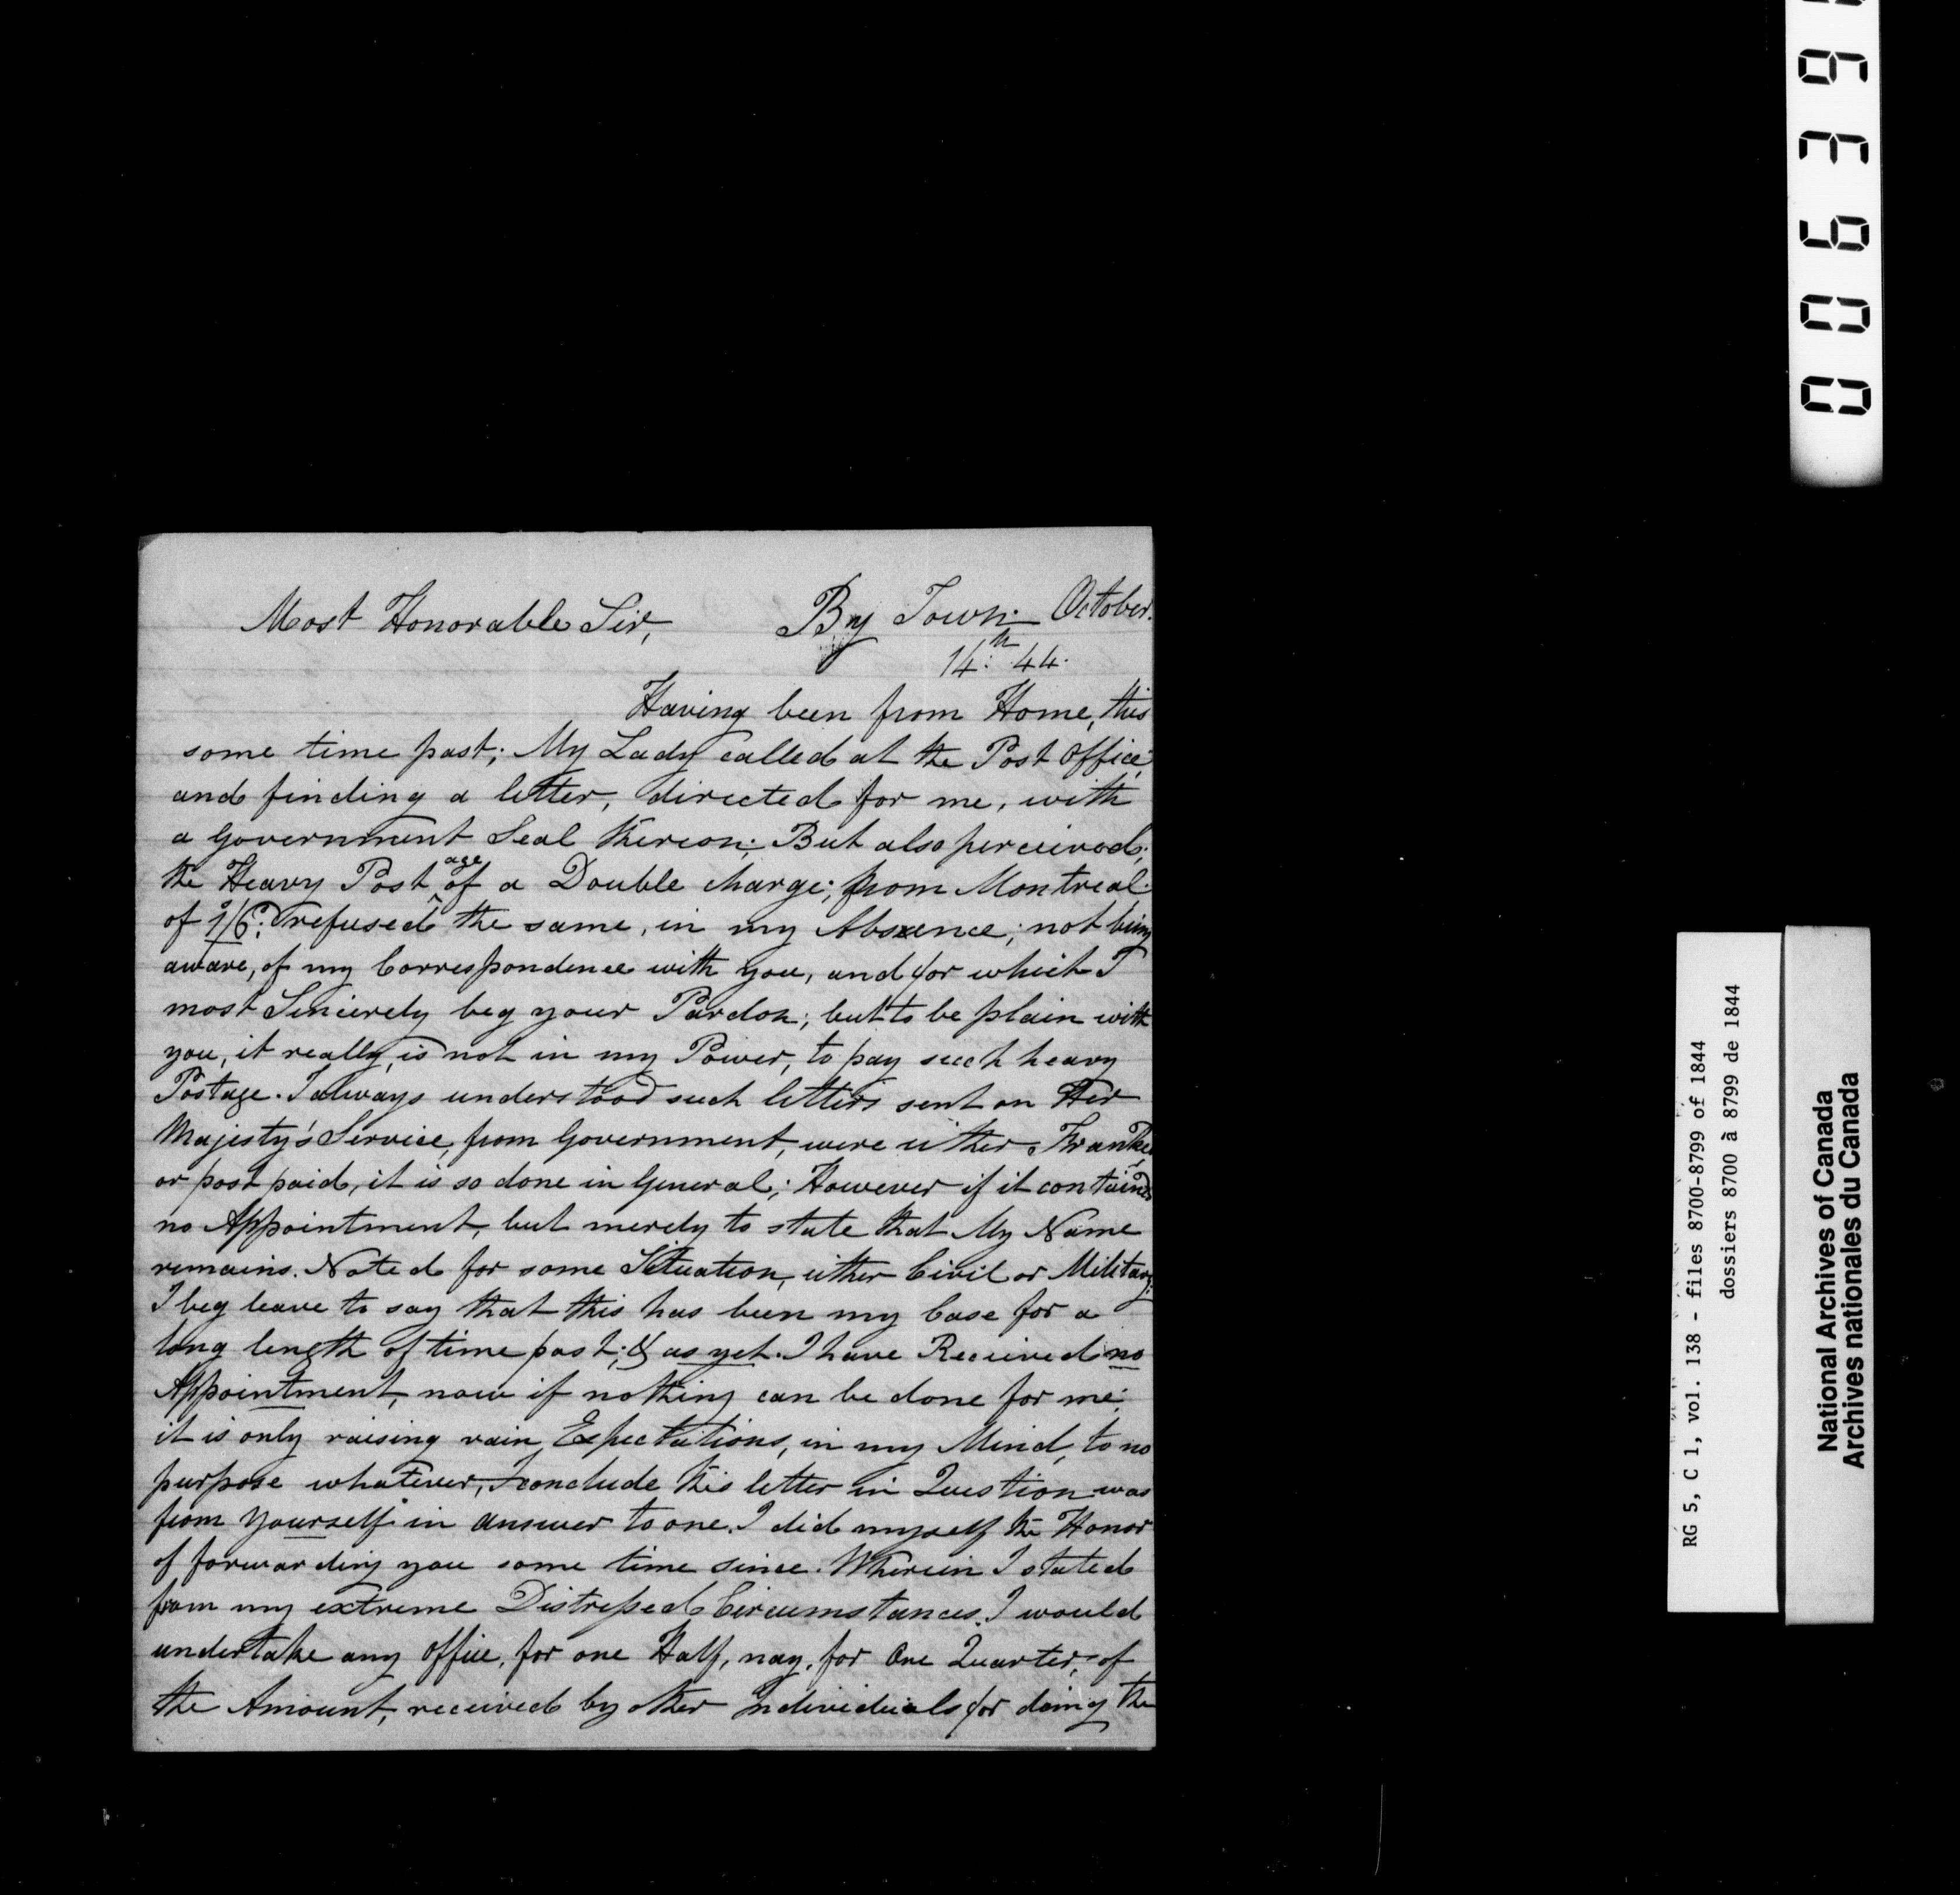 Most Honorable Sir, By Town October.
14th 44.
Having been from Home, this
some time past; My Lady called at the Post Office;
and finding a letter, directed for me, with
a Government Seal thereon; But also perceived;
the Heavy Post^age of a Double charge; from Montreal
of 1/6; refused the same, in my Absence; not being
aware, of my Correspondence with you, and for which I
most Sincerely beg your Pardon; but to be plain with
you, it really, is not in my Power, to pay such heavy
Postage. I always understood such letters sent on Her
Majesty's Service, from Government, were either Franked
or post paid, it is so done in General; However if it contains
no Appointment, but merely to state that My Name
remains. Noted for some Situation, either Civil or Military;
I beg leave to say that this has been my Case for a
long length of time past; & as yet. I have Received no
Appointment, now if nothing can be done for me;
it is only raising vain Expectations, in my Mind, to no
purpose whatever, I conclude this letter in Question was
from Yourself in answer to one. I did myself the Honor
of forwarding you some time since. Wherein I stated
from my extreme Distressed Circumstances. I would
undertake any office, for one Half, nay, for One Quarter, of
the Amount, received by other Individuals for doing the
RG 5, C 1, vol. 138 - files 8700-8799 of 1844
dossiers 8700 à 8799 de 1844
National Archives of Canada
Archives nationales du Canada
00639